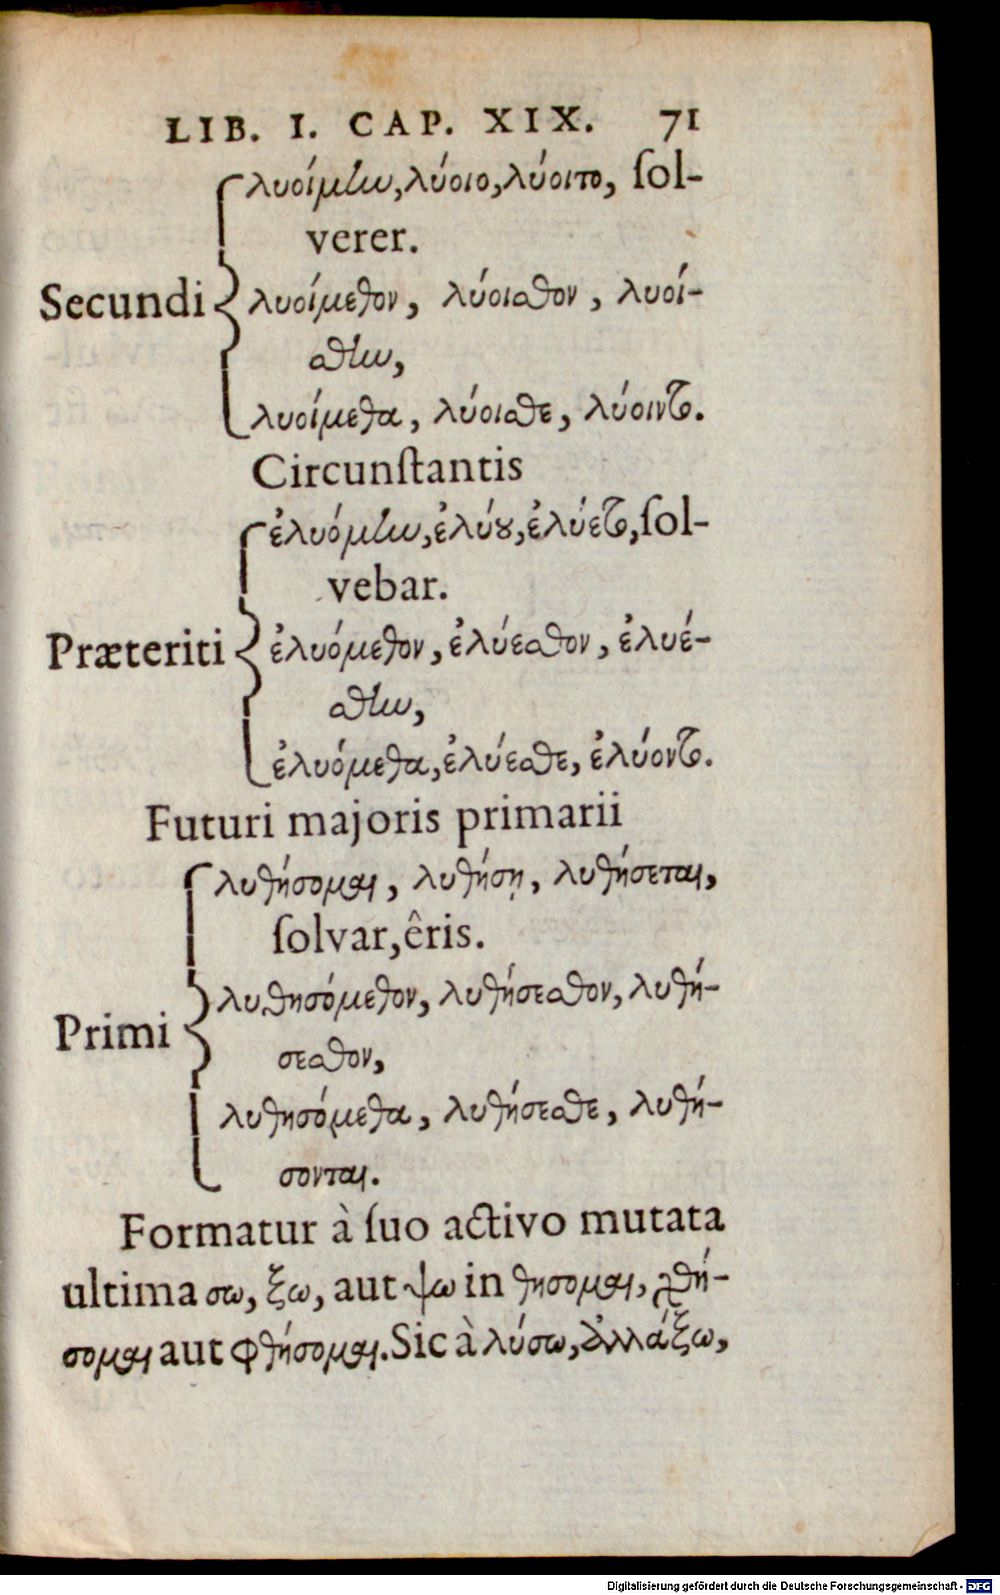 LIB. I. CAP. XIX. 71
λυοίμην, λύοιο, λύοιτο, ſol-
verer.
Secundi λυοίμεθον, λύοισθον, λυοί-
σθην,
λυοίμεθα, λύοισθε, λύοιντο.
Circunſtantis
ἐλυόμην, ἐλύου, ἐλύετο, ſol-
vebar.
Præteriti ἐλυόμεθον, ἐλύεσθον, ἐλυέ-
σθην,
ἐλυόμεθα, ἐλύεσθε, ἐλύοντο.
Futuri majoris primarii
λυθήσομαι, λυθήσῃ, λυθήσεται,
ſolvar, êris.
Primi λυθησόμεθον, λυθήσεσθον, λυθή-
σεσθον,
λυθησόμεθα, λυθήσεσθε, λυθή-
σονται.
Formatur à ſuo activo mutata
ultima σω, ξω, aut ψω in θησομαι, χθή-
σομαι aut φθήσομαι. Sic à λύσω, ἀλλάξω,
Digitalisierung gefördert durch die Deutsche Forschungsgemeinschaft - DFG